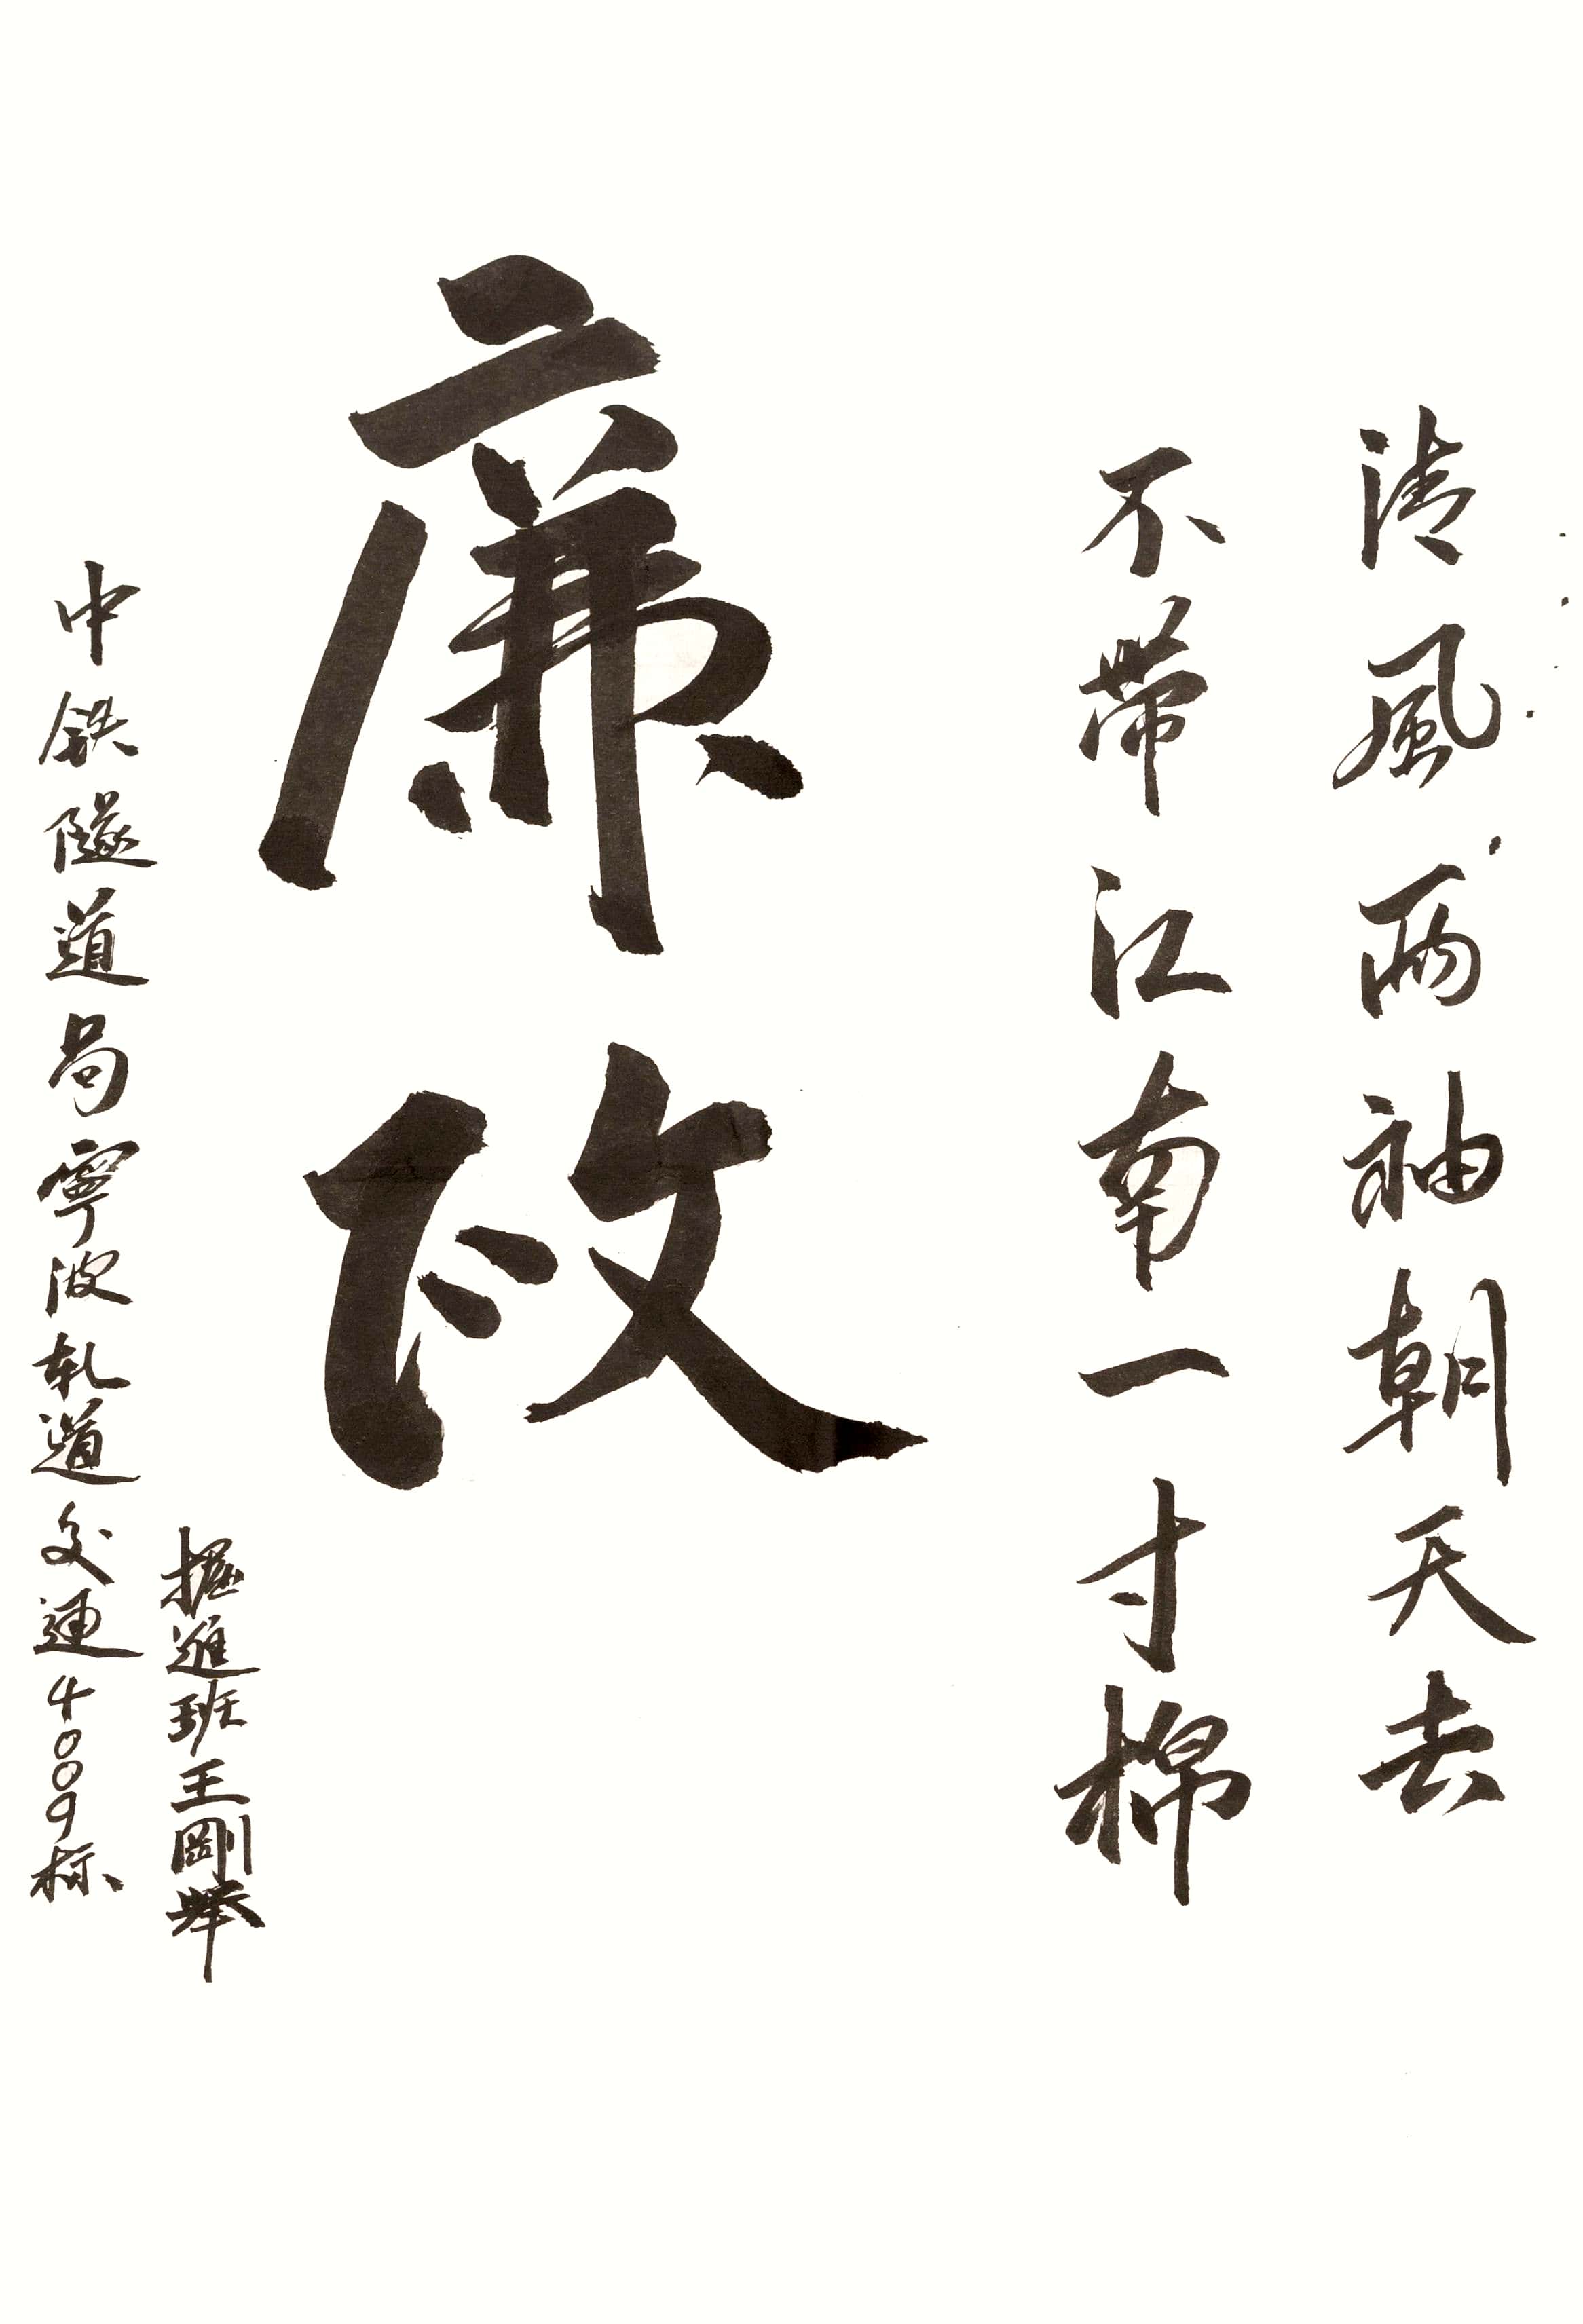 清風兩袖朝天去
不帶江南一寸棉
廉政
掘進班王剛舉
中铁隧道局寧波轨道交通4009标